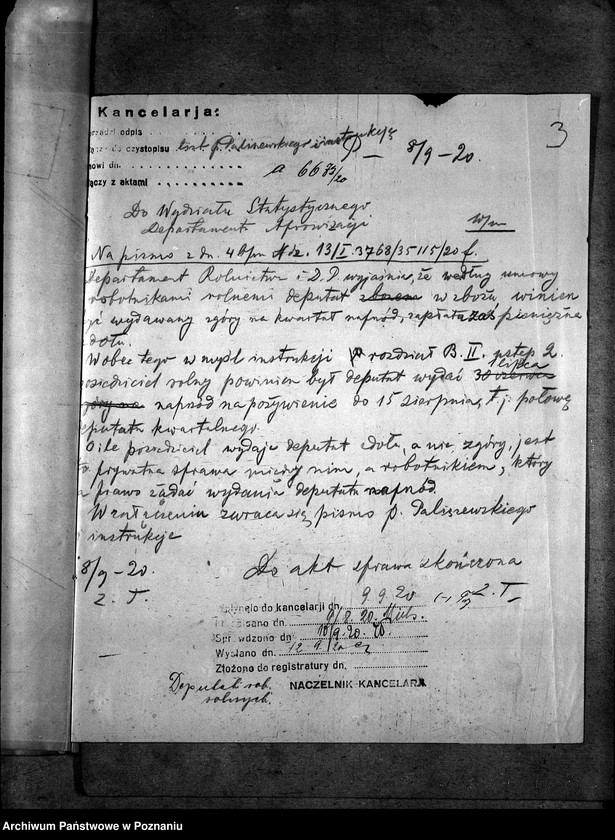 Kancelarja:
odpis
do czystopisu list p. Paliszewskiego i instrukcję
dn.
z aktami
8/9-20.
3
a 66 73/20
Do Wydziału Statystycznego
Departamentu Aprowizacji
w/m
Na pismo z dn. 4 bm Ndz. 13/I.3768/35115/20 f.
Departament Rolnictwa i D.P. wyjaśnia, że według umowy
robotnikami rolnemi deputat w zbożu winien
wydawany zgóry na kwartał naprzód, zapłata zaś pieniężna
zdołu.
Wobec tego w myśl instrukcji rozdział B. II. ustęp 2.
posiedziciel rolny powinien był deputat wydać 30 czerwca 1 lipca
naprzód na pożywienie do 15 sierpnia, t.j. połowę
deputatu kwartalnego.
O ile posiedziciel wydaje deputat zdołu, a nie zgóry, jest
to prywatna sprawa między nim, a robotnikiem, który
prawo żądać wydania deputatu naprzód.
W załączeniu zwraca się pismo p. Paliszewskiego
instrukcje
8/9-20.
Z. T.
Do akt sprawa skończona
Z. T.
do kancelarji dn. 9 9 20
dn.
Sprawdzono dn. 10/9.20.
Wysłano dn. 12.9.
Złożono do registratury dn.
NACZELNIK KANCELARJI
Deputat rob.
rolnych.
Archiwum Państwowe w Poznaniu